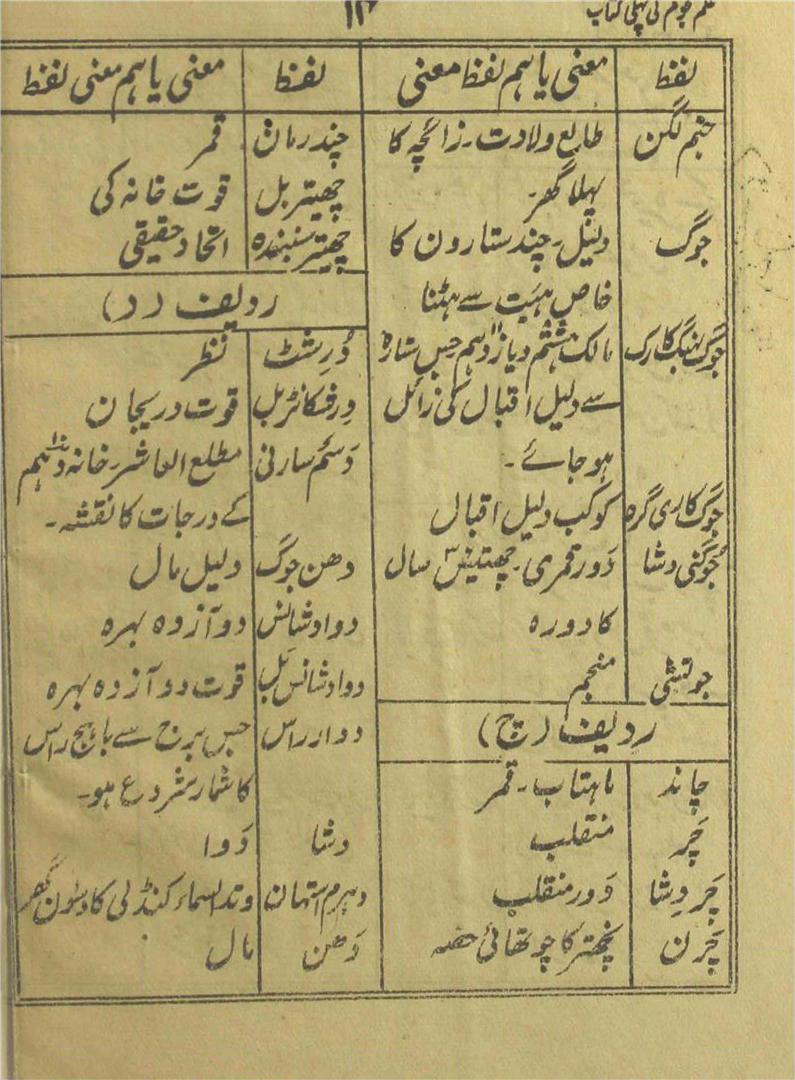 علم نجوم کی پہلی کتاب
۱۴
لفظ معنی یا ہم لفظ معنی
جنم لگن طالع ولادت۔ زائچہ کا
پہلا گھر۔
جوگ دلیل۔ چند ستارون کا
خاص ہئیت سے ہٹنا
جوگ بہنگ کارک مالک ہشتم و یازدہم جس ستارہ
سے دلیل اقبال کی زائل
ہو جائے۔
جوگ کاری گرہ کوکب دلیل اقبال
جُوگنی دشا دَور قمری۔ چھتیس سال
کا دورہ
جوتشی منجم
ردیف (چ)
چاند ماہتاب۔ قمر
چَر منقلب
چَر دِشا دَور منقلب
چَرن نچھتر کا چوتھائی حصہ
لفظ معنی یا ہم معنی لفظ
چندرمان قمر
چھیتر بل قوت خانہ کی
چھیتر سنبندہ اتحاد حقیقی
ردیف (د)
دُرِشٹ نظر
دِرشکانڑ بل قوت دریجان
دَسَم سارنی مطلع العاشر۔ خانہ دہم
کے درجات کا نقشہ۔
دھن جوگ دلیل مال
دوادشانس دوآزدہ بہرہ
دوادشانس بَل قوت دوآزدہ بہرہ
دوار راس جس برج سے باہج راس
کا شمار شروع ہو۔
دشا دَوا
دہرم استہان وتد السماء کنڈلی کا دسوان گھر
دَھن مال